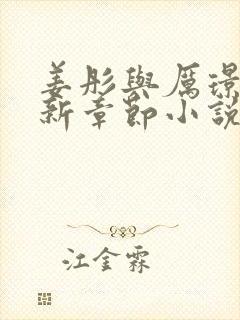 姜彤與厲璟
新章節小説
江金霖